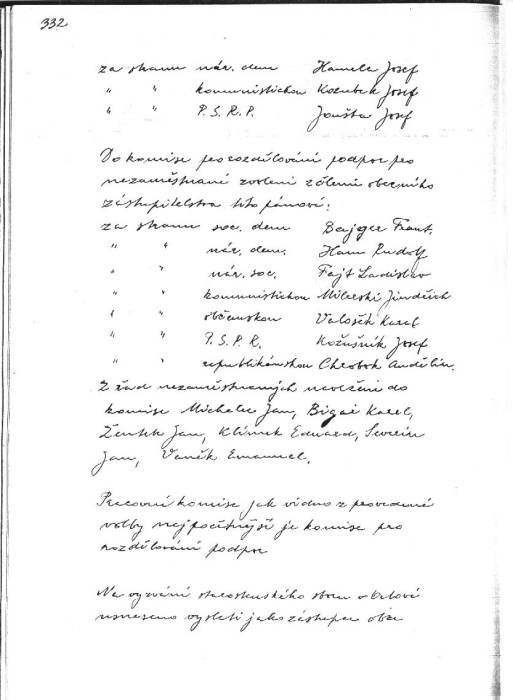 332
za stranu nár. dem Hamela Josef
" " komunistickou Kozubek Josef
" " P. S. R. P. Joušta Josef
Do komise pro rozdělování podpor pro
nezaměstnané zvoleni z členů obecního
zastupitelstva tito pánové:
za stranu soc. dem Bajger Frant.
" " nár. dem. Ham Rudolf
" " nár. soc. Fajt Ladislav
" " komunistickou Milerski Jindřich
" " občanskou Valošek Karel
" " P. S. P. R. Kožušník Josef
" " republikánskou Chrobok Andělín.
Z řad nezaměstnaných navrženi do
komise Michalec Jan, Bigaj Karel,
Žentek Jan, Klimek Eduard, Severin
Jan, Vaněk Emanuel.
Pracovní komise jak vidno z provedené
volby nejpočetnější je komise pro
rozdělování podpor
Na vyzvání starostenského sboru v Orlové
usneseno vyslati jako zástupce obce